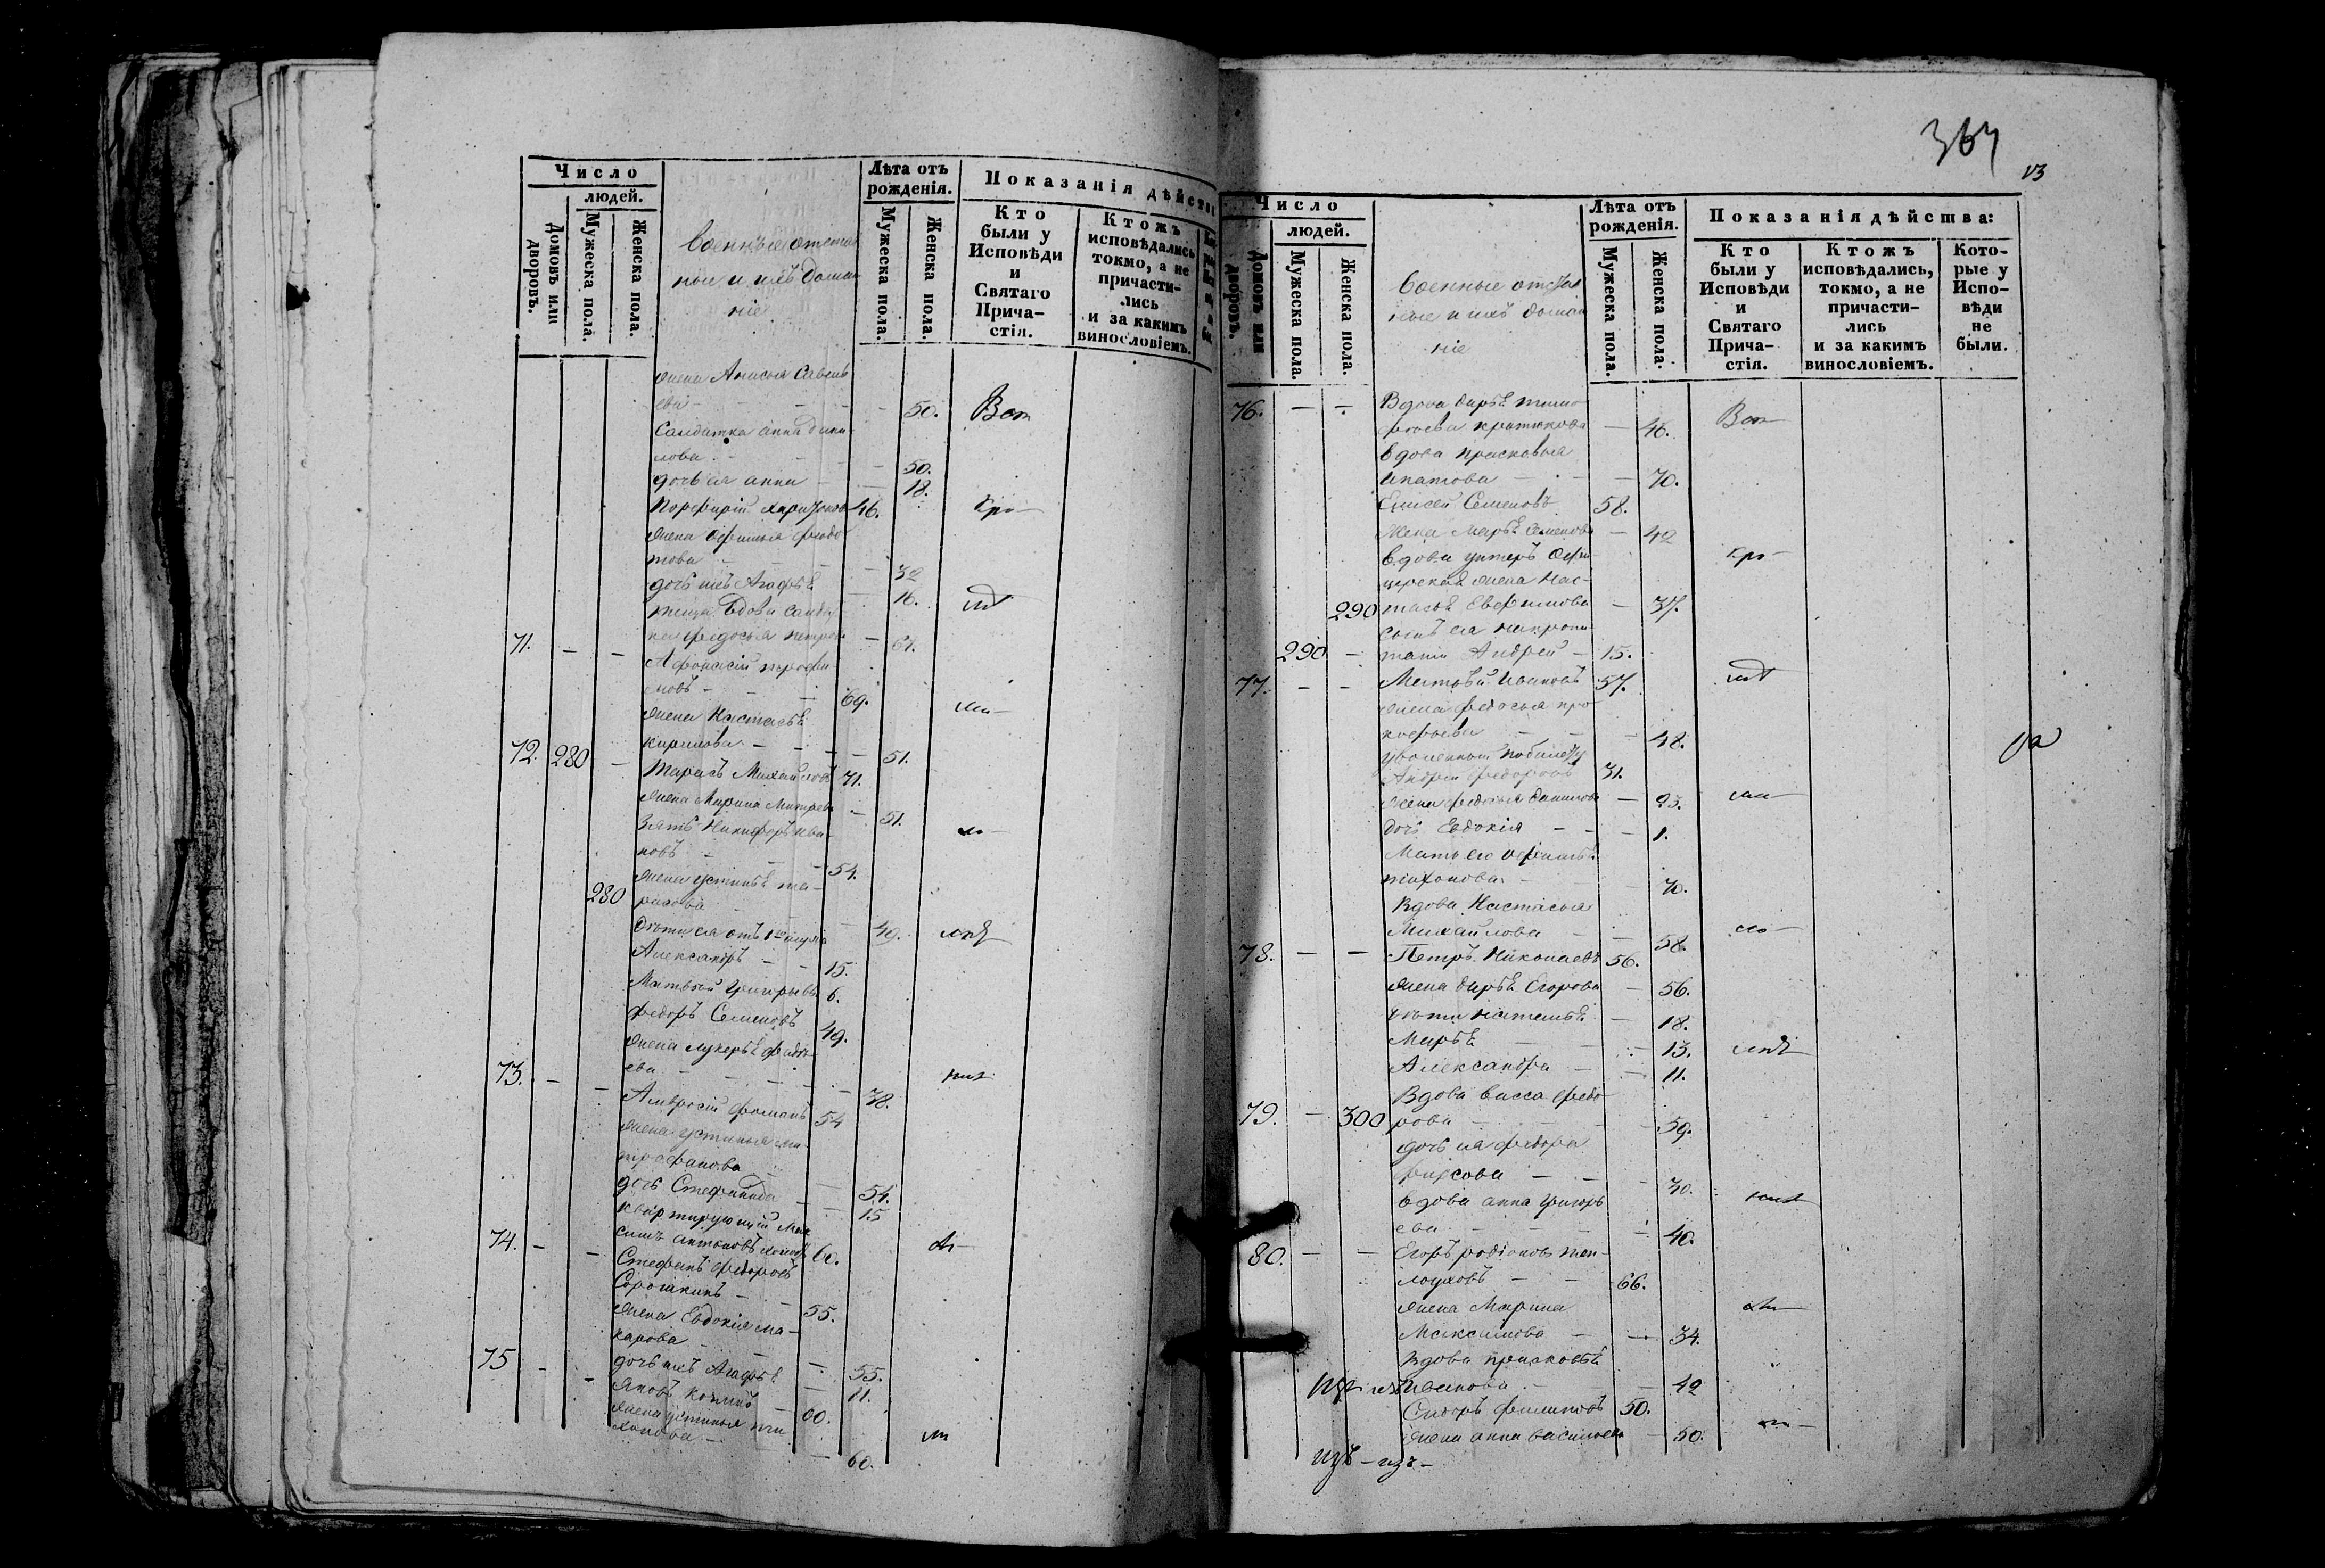 Число
людей.
Домовъ или дворовъ.
Мужеска пола.
Женска пола.
военные отстав
ные и ихъ домаш
ніе
Лѣта отъ рожденія.
Мужеска пола.
Женска пола.
Показанія дѣйств
Кто были у Исповѣди и Святаго Прича- стія.
Ктожъ исповѣдались токмо, а не причасти- лись и за какимъ винословіемъ.
жена Анисья Савель
ева - - - - 50. Вст
Салдатка анна дани
лова - - - 50.
дочь ея анна - - 18.
Порфирій Харитоновъ 46.
жена Офимья Федо
това - - - 32
дочь ихъ Агафьѣ - 16.
теща вдова салдат
ка Федосья Петрова -
71. - - Афонасій трофи
мовъ - - - 69.
жена Настасьѣ
кирилова - - - 51.
72. 280 - Тарасъ Михайловъ 71.
жена Марина Митрева - 51.
зять Никифоръ Ива
новъ - - - 54.
жена устиньѣ та-
280 расова - - 49.
дѣти ея отъ 1го мужа
Александръ - - 15.
Матвѣй Григорьевъ 6.
Федоръ Семеновъ 49.
жена лукерьѣ
ева - - - - 38.
73. - - Амвросій Фоминъ 54
жена устинья ми
трофанова - - 54.
дочь Степанида - 15
квартирующій Мак
симъ антоновъ 60.
74. - - Стефанъ Федоровъ
Сорокинъ - - 55.
жена Евдокія ма-
карова - - - 55.
дочь ихъ Агафьѣ - 11.
75 - - Яковъ 60.
жена устинья ти
хонова - - 60.
367
Число
людей.
Домовъ или дворовъ.
Мужеска пола.
Женска пола.
Военные отстав
ные и ихъ домаш
ніе
Лѣта отъ рожденія.
Мужеска пола.
Женска пола.
Показанія дѣйства:
Кто были у Исповѣди и Святаго Прича- стія.
Ктожъ исповѣдались, токмо, а не причасти- лись и за какимъ винословіемъ.
Кото- рые у Испо- вѣди не были.
76. - - Вдова дарьѣ тимо
фѣева - 46. Вст
вдова Прасковья
Ипатова - - - 70.
Елисей Семеновъ 58.
Жена Марьѣ Семенова - 42
вдова унтеръ Офи-
церская жена Нас-
290 тасьѣ Ефимова - 37.
сынъ ея
290 - Андрей - 15.
77. - - Матвѣй Ивановъ 57.
жена Федосья про
кофьева - - - 48.
уволенный по билету
Андрей Федоровъ 31.
жена Федосья данилова - 23.
дочь Евдокія - - - 1.
Мать его Офимьѣ
тихонова - - - 70.
Вдова Настасья
Михайлова - - 58.
78. - - Петръ Николаевъ 56.
жена дарьѣ Егорова - 56.
дѣти Натальѣ - 18.
Марьѣ - - - 13.
Александра - - 11.
Вдова васса Федо
79. - 300 рова - - - 59.
дочь ея Федора
- - - 30.
вдова анна Григорь
ева - - - 40.
80. - - Егоръ родіоновъ теп-
лоуховъ - - 66.
жена Марина
Максимова - - 34.
вдова прасковьѣ
Иванова - - - 42
Сидоръ Филиповъ 50.
жена анна васильева - 50.